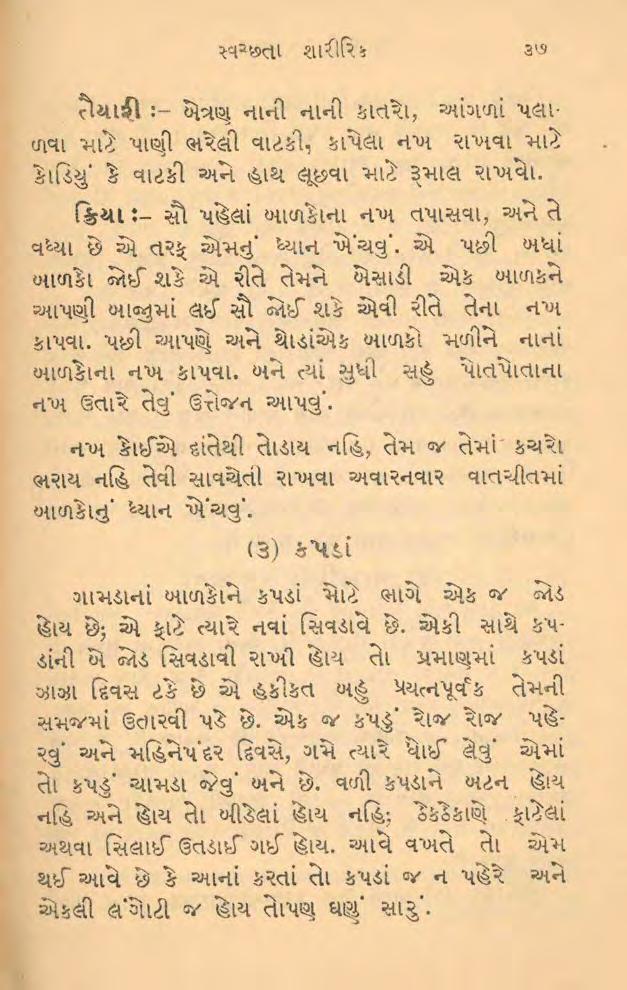 સ્વચ્છતા શારીરિક ૩૭
તૈયારી :– બેત્રણ નાની નાની કાતરો, આંગળાં પલા-
ળવા માટે પાણી ભરેલી વાટકી, કાપેલા નખ રાખવા માટે
કોડિયું કે વાટકી અને હાથ લૂછવા માટે રૂમાલ રાખવો.
ક્રિયા :– સૌ પહેલાં બાળકોના નખ તપાસવા, અને તે
વધ્યા છે એ તરફ એમનું ધ્યાન ખેંચવું. એ પછી બધાં
બાળકો જોઈ શકે એ રીતે તેમને બેસાડી એક બાળકને
આપણી બાજુમાં લઈ સૌ જોઈ શકે એવી રીતે તેના નખ
કાપવા. પછી આપણે અને થોડાંએક બાળકો મળીને નાનાં
બાળકોના નખ કાપવા. બને ત્યાં સુધી સહુ પોતપોતાના
નખ ઉતારે તેવું ઉત્તેજન આપવું.
નખ કોઈએ દાંતેથી તોડાય નહિ, તેમ જ તેમાં કચરો
ભરાય નહિ તેવી સાવચેતી રાખવા અવારનવાર વાતચીતમાં
બાળકોનું ધ્યાન ખેંચવું.
(૩) કપડાં
ગામડાનાં બાળકોને કપડાં મોટે ભાગે એક જ જોડ
હોય છે; એ ફાટે ત્યારે નવાં સિવડાવે છે. એકી સાથે કપ-
ડાંની બે જોડ સિવડાવી રાખી હોય તો પ્રમાણમાં કપડાં
ઝાઝા દિવસ ટકે છે એ હકીકત બહુ પ્રયત્નપૂર્વક તેમની
સમજમાં ઉતારવી પડે છે. એક જ કપડું રોજ રોજ પહે-
રવું અને મહિનેપંદર દિવસે, ગમે ત્યારે ધોઈ લેવું એમાં
તો કપડું ચામડા જેવું બને છે. વળી કપડાને બટન હોય
નહિ અને હોય તો બીડેલાં હોય નહિ; ઠેકઠેકાણે ફાટેલાં
અથવા સિલાઈ ઉતડાઈ ગઈ હોય. આવે વખતે તો એમ
થઈ આવે છે કે આનાં કરતાં તો કપડાં જ ન પહેરે અને
એકલી લંગોટી જ હોય તોપણ ઘણું સારું.